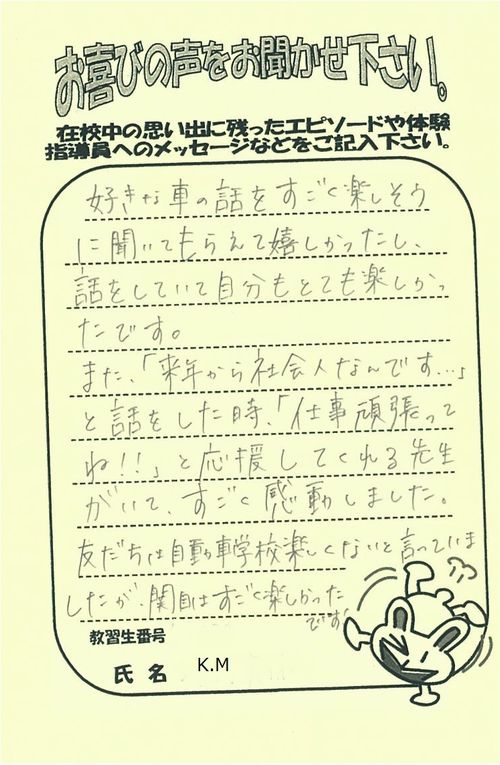 お喜びの声をお聞かせ下さい。
在校中の思い出に残ったエピソードや体験
指導員へのメッセージなどをご記入下さい。
好きな車の話をすごく楽しそう
に聞いてもらえて嬉しかったし、
話をしていて自分もとても楽しかっ
たです。
また、「来年から社会人なんです…」
と話をした時、「仕事頑張って
ね!!」と応援してくれる先生
がいて、すごく感動しました。
友だちは自動車学校楽しくないと言っていま
したが、関自はすごく楽しかった
です
教習生番号
氏名 K.M